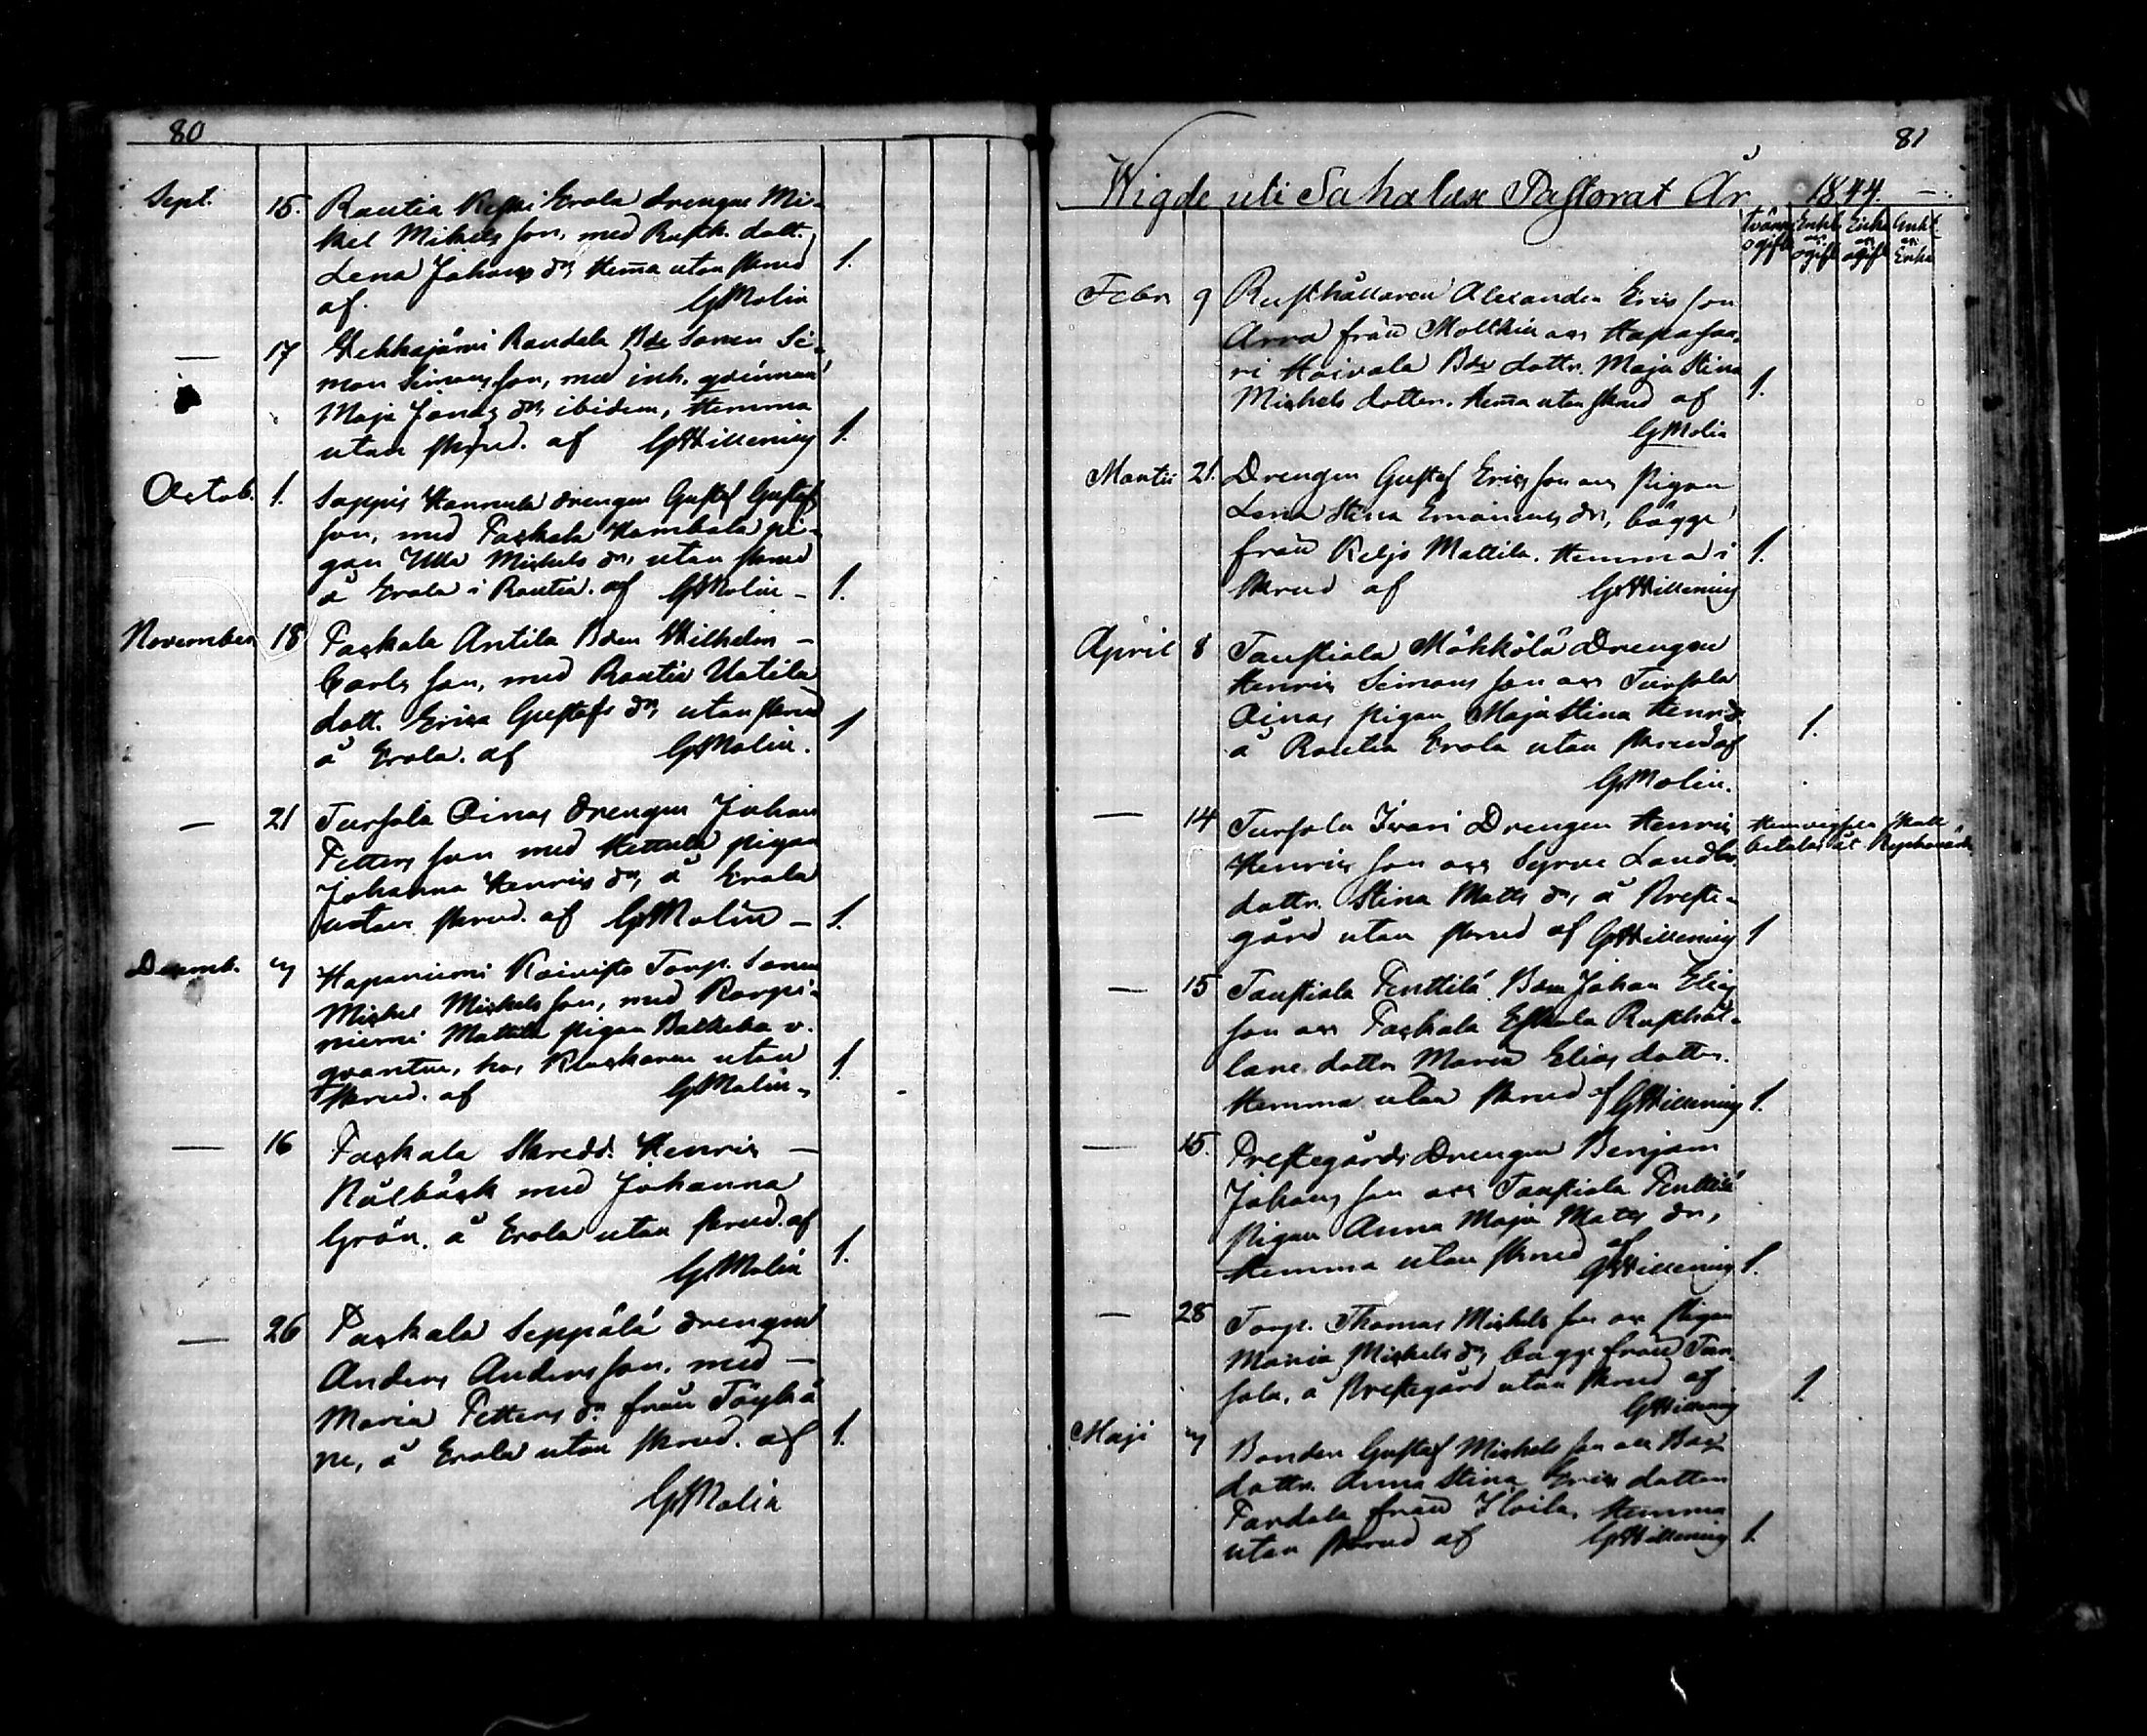 80
Sept. 15. Rautia Keski Erola drengen Mi-
kel Mikels son, med Rusth. dott.
Lena Johans dr, Hem̄a utan skrud 1.
af. GMolin
— 17 Kekkajärvi Randala Bde Sonen Si-
mon Simons son, med inh. qvinnan
Maja Jonas dr, ibidem, Hemma
utan skrud. af GWillening 1.
Octob. 1. Sappis Hannula drengen Gustaf Gustafs
son, med Paskala Hambala pi-
gan Ulla Michels dr, utan skrud
å Erola i Rautia. af GMolin – 1.
November 18 Paskala Antila Bden Wilhelm –
Carls son, med Rautia Uotila
dott. Erica Gustafs dr, utan skrud
å Erola. af GMolin. 1
— 21 Tursola Oinas drengen Johan
Petters son med Hettula pigan
Johanna Henrics dr, å Erola
utan skrud. af GMolin – 1.
Decemb. 7 Haponiemi Koivisto Torp. Sonen
Michel Michels son, med
niemi Mattila pigan
hos Klockaren utan 1.
skrud. af GMolin –
— 16 Paskala Skredd. Henric –
Nålbäck med Johanna
Grön. å Erola utan skrud. af 1.
GMolin
— 26 Paskala Seppälä drengen
Anders Anders son, med –
Maria Petters dr. från
ne, å Erola utan skrud. af 1.
GMolin
81
Wigde uti Sahalax Pastorat År 1844. –
Febr. 9 Rusthållaren Alexander Erics son
Arra från Moltkin och Haposaa-
ri Hoivala Bde dottr. Maja Stina
Michels dotter. Hem̄a utan skrud af 1.
GMolin
Martii 21. Drengen Gustaf Erics son och Pigan
Lena Stina Emanuels dr, bägge
från Keljo Mattila. Hemma i 1.
Skrud af GWillening
April 8 Taustiala Mökkölä Drengen
Henric Simons son och Tursola
Oinas pigan Maja Stina Henr. d.
å Rautia Erola utan skrud af 1.
GMolin.
— 14 Tursola Ivari Drengen Henric
Henrics son och Landb.
dottr. Stina Matts dr, å Preste-
gård utan skrud af GWillening 1
— 15 Taustiala Penttilä Bden Johan Elias
son och Paskala Eskola Rusthål-
lare dottr Maria Elias dotter.
Hemma utan skrud af GWillening 1.
— 15. Prestegårds Drengen Benjam
Johans son och Taustiala Penttilä
pigan Anna Maja Matts dr,
Hemma utan skrud af GWillening 1.
— 28 Torp. Thomas Michels son och Pigan
Maria Michels dr bägge från Tur-
sola, å Prestegård utan skrud af 1.
GWillening
Maji 7 Bonden Gustaf Michels son och Bde
dottr. Anna Stina Erics dotter
från Hemma
utan skrud af GWillening 1.